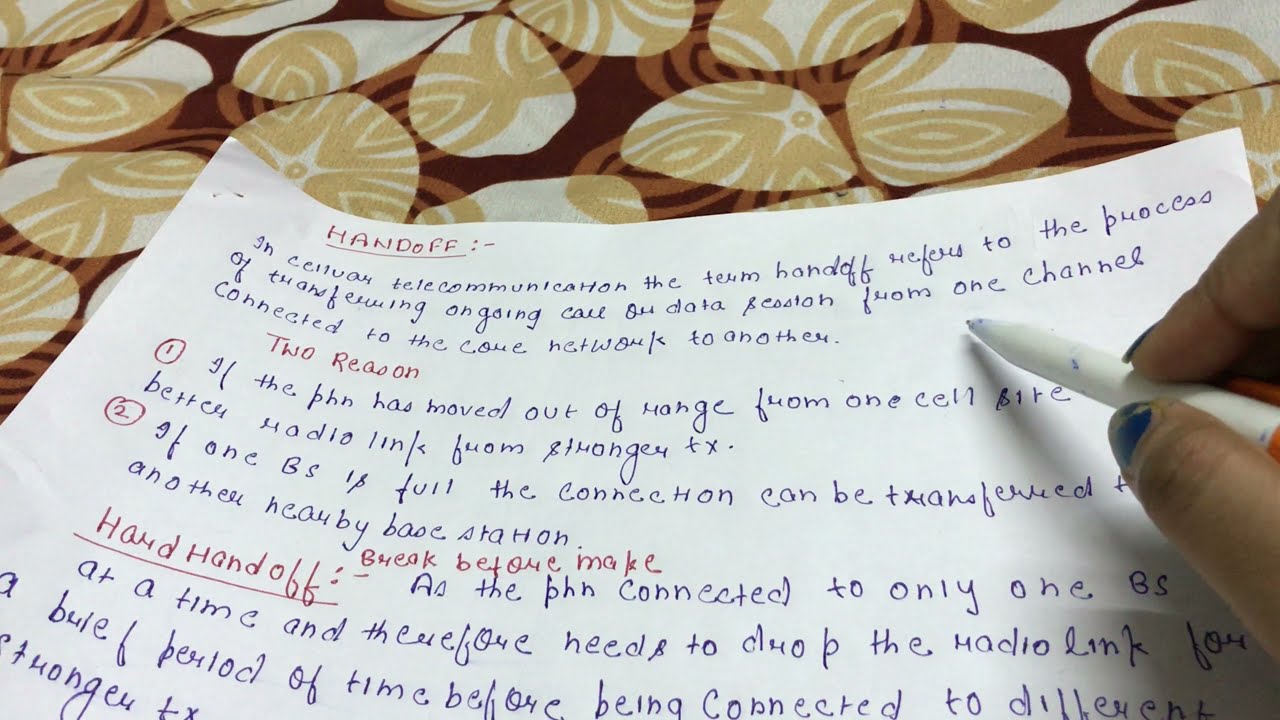 HANDOFF :-
In celluar telecommunication the term handoff refers to the process
of transferring ongoing call or data session from one channel
connected to the core network to another.
Two Reason
① If the phn has moved out of range from one cell site
better radio link from stronger tx.
② If one BS is full the connection can be transferred
another nearby base station.
Hard Handoff :- Break before make
As the phn connected to only one BS
at a time and therefore needs to drop the radio link for
a brief period of time before being connected to different
stronger tx